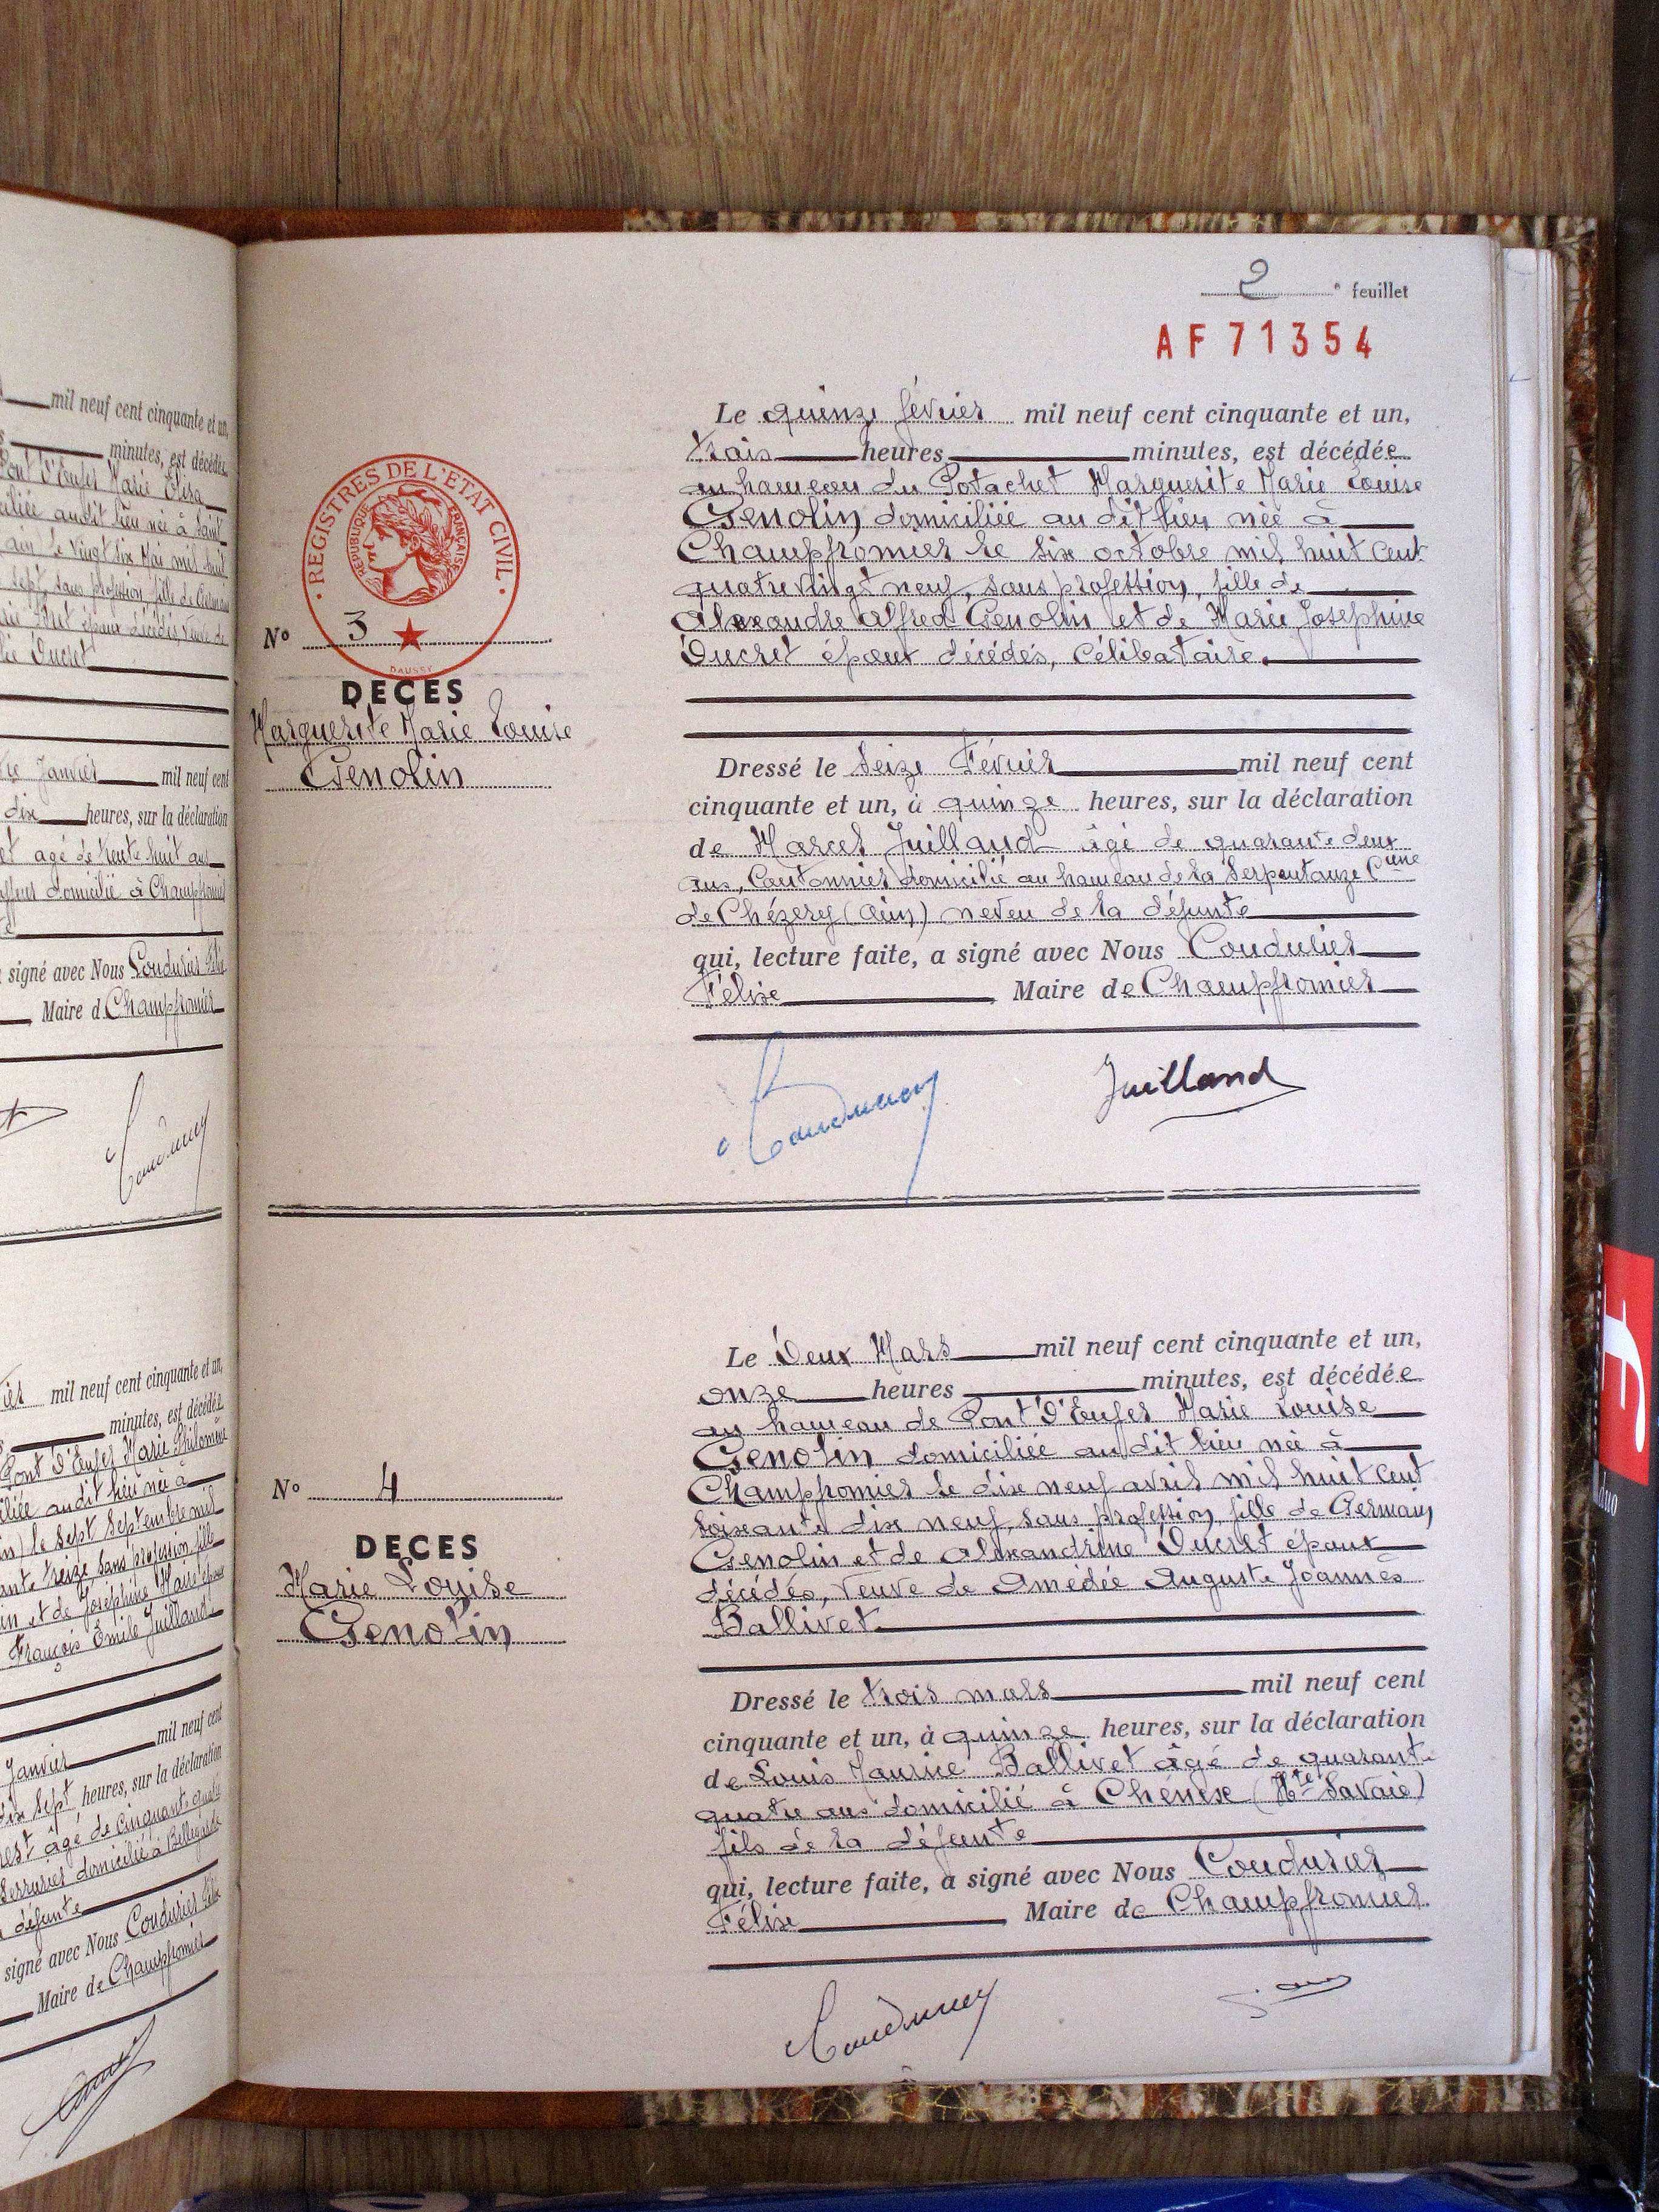 mil neuf cent cinquante et un,
minutes, est décédée
Pont d'Enfer Marie Élisa
ciliée audit lieu née à Saint
ain) le vingt six Mai mil huit
sept, sans profession, fille de Germain
Ducret époux décédés, veuve de
Ducret
Janvier mil neuf cent
dix heures, sur la déclaration
et agé de trente huit ans
domicilié à Champfromier
signé avec Nous Coudurier Félix
Maire d Champfromier
mil neuf cent cinquante et un,
minutes, est décédée
Pont d'Enfer Marie Philomène
ciliée audit lieu née à
in) le sept Septembre mil
ante treize, sans profession, fille
in et de Joséphine Marie
François Émile Juilland
Janvier mil neuf cent
dix sept heures, sur la déclaration
est âgé de cinquante quatre
Serrurier domicilié à Bellegarde
défunte
signé avec Nous Coudurier Félix
Maire de Champfromier
2e feuillet
AF 71354
REGISTRES DE L'ÉTAT CIVIL
RÉPUBLIQUE FRANÇAISE
DAUSSY
N° 3
DECES
Marguerite Marie Louise
Genolin
Le quinze février mil neuf cent cinquante et un,
trois heures minutes, est décédée
au hameau du Potachet Marguerite Marie Louise
Genolin domiciliée au dit lieu née à
Champfromier le six octobre mil huit cent
quatre vingt neuf, sans profession, fille de
Alexandre Alfred Genolin et de Marie Joséphine
Ducret époux décédés, célibataire.
Dressé le seize Février mil neuf cent
cinquante et un, à quinze heures, sur la déclaration
de Marcel Juilland âgé de quarante deux
ans, Cantonnier domicilié au hameau de la Serpentouze Cune
de Chézery (Ain) neveu de la défunte
qui, lecture faite, a signé avec Nous Coudurier
Félix Maire de Champfromier
Coudurier Juilland
N° 4
DECES
Marie Louise
Genolin
Le Deux Mars mil neuf cent cinquante et un,
onze heures minutes, est décédée
au hameau de Pont d'Enfer Marie Louise
Genolin domiciliée au dit lieu née à
Champfromier le dix neuf avril mil huit cent
soixante dix neuf, sans profession, fille de Germain
Genolin et de Alexandrine Ducret époux
décédés, veuve de Amédée Auguste Joannès
Ballivet.
Dressé le trois mars mil neuf cent
cinquante et un, à quinze heures, sur la déclaration
de Louis Maurice Ballivet âgé de quarante
quatre ans domicilié à Chénex (Hte Savoie)
fils de la défunte
qui, lecture faite, a signé avec Nous Coudurier
Félix Maire de Champfromier
Coudurier
duo